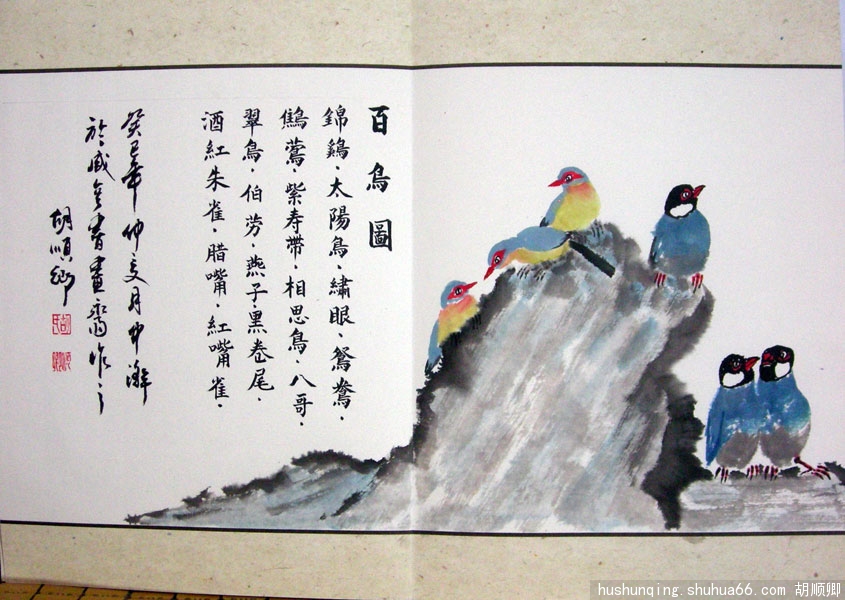 百鳥圖
錦鷄、太陽鳥、繡眼、鴛鴦、
鶯、紫寿帶、相思鳥、八哥、
翠鳥、伯劳、燕子、黑卷尾、
酒紅朱雀、腊嘴、紅嘴雀、
癸巳年仲夏月中澣
於書畫齋作之
胡順卿
hushunqing.shuhua66.com 胡顺卿